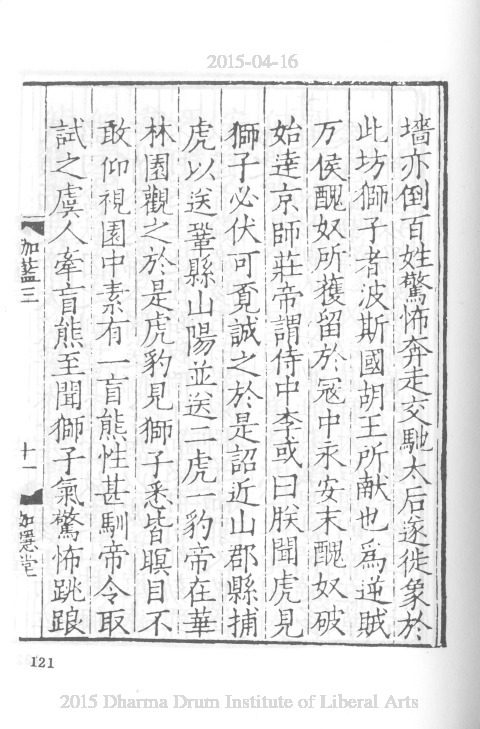 2015-04-16
墻亦倒百姓驚怖奔走交馳太后遂徙象於
此坊獅子者波斯國胡王所献也爲逆賊
万侯醜奴所獲留於冦中永安末醜奴破
始達京師莊帝謂侍中李或曰朕聞虎見
獅子必伏可覔誠之於是詔近山郡縣捕
虎以送鞏縣山陽並送二虎一豹帝在華
林園觀之於是虎豹見獅子悉皆瞑目不
敢仰視園中素有一盲熊性甚馴帝令取
試之虞人牽盲熊至聞獅子氣驚怖跳踉
伽藍三
十一
如隱堂
121
2015 Dharma Drum Institute of Liberal Arts